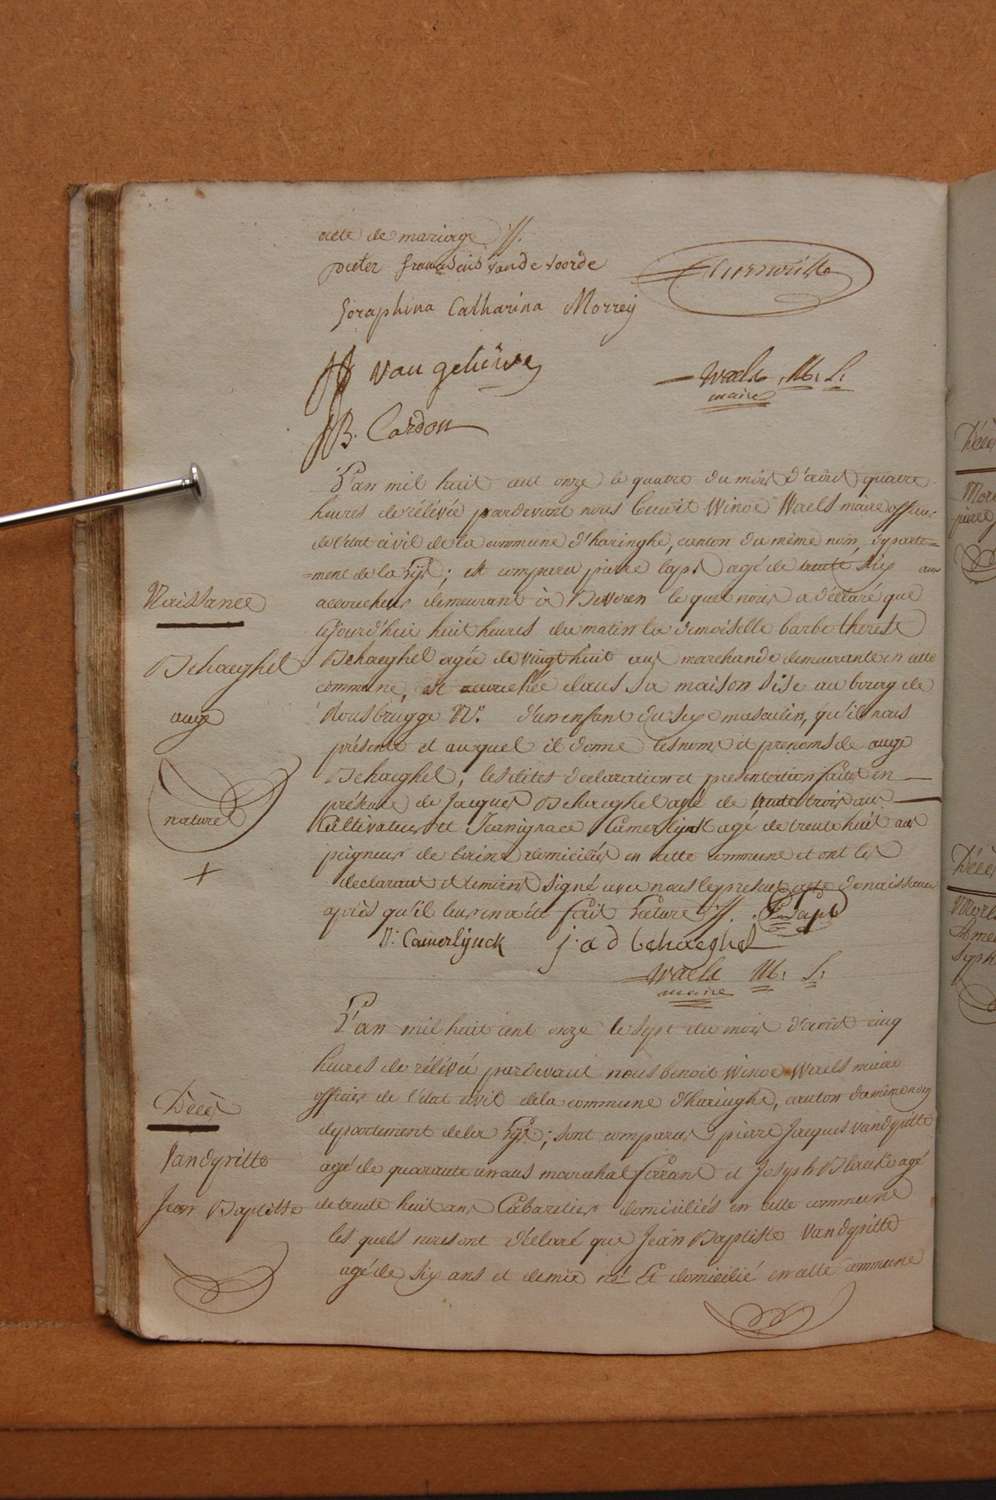 acte de mariage
pieter franciscus van de voorde
Seraphina Catharina Morreij
van gelüwe
Waels M. L.
maire
J B. Cardon
L'an mil huit cent onze le quatre du mois d'août quatre
heures de rélévée pardevant nous benoit Winoc Waels maire officier
de l'état civil de la commune d'haringhe, canton du même nom, départe=
=ment de la Lys; est comparu pierre Lapé agé de trente six ans
accoucheur demeurant à Beveren lequel nous a déclaré que
cejourd'hui huit heures du matin la demoiselle barbe therese
Dehaeghel agée de vingt huit ans marchande demeurante en cette
commune, est accouchée dans sa maison sise au bourg de
Rousbrugge N.° d'un enfant du sexe masculin, qu'il nous
présente et auquel il donne les noms et prenoms de auge
Dehaeghel; lesdites déclaration et présentation faites en
présence de Jacques Dehaeghel agé de trente trois ans
Cultivateur et Jean ignace Camerlynck agé de trente huit ans
peigneur de domiciliés en cette commune et ont les
déclarant et témoins signé avec nous le présent acte de naissance
après qu'il leur en a été fait lecture
Camerlÿnck j. a d behaeghel
Waels M. L.
maire
Naissance
Dehaeghel
auge
naturel
L'an mil huit cent onze le sept du mois d'août cinq
heures de rélévée pardevant nous benoit Winoc Waels maire
officier de l'état civil de la commune d'haringhe, canton du même nom
département de la Lys; sont comparus pierre Jacques Vandyritte
agé de quarante un ans marechal ferrant et Joseph agé
de trente huit ans Cabaretier domiciliés en cette commune
les quels nous ont déclaré que Jean Baptiste Vandyritte
agé de six ans et demie né et domicilié en cette commune
Décès
Vandyritte
Jean Baptiste
Décès
pierre
Décès